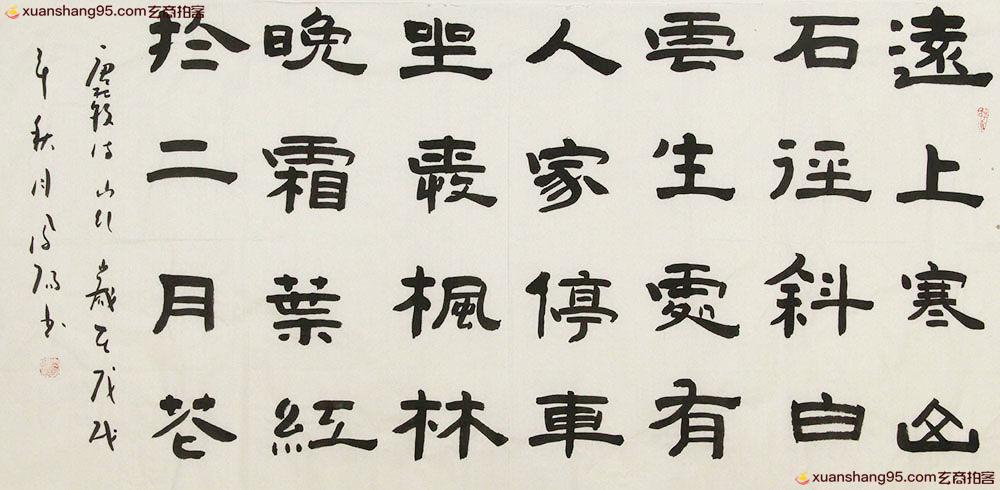 xuanshang95.com玄商拍客
遠上寒山
石徑斜白
雲生處有
人家停車
坐愛楓林
晚霜葉紅
於二月花
唐杜牧诗山行 歲在戊戌
年秋月书
xuanshang95.com玄商拍客